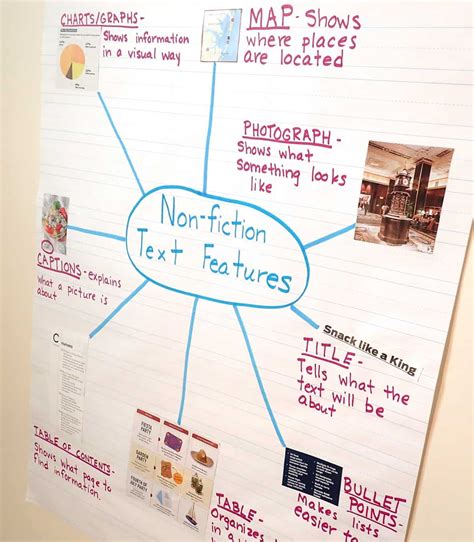 CHARTS/GRAPHS-
Shows information
in a visual way
MAP- Shows
where places
are located
PHOTOGRAPH-
Shows what
something looks
like
Non-fiction
Text Features
CAPTIONS-explains
what a picture is
about
Snack like a King
TITLE-
Tells what the
text will be
about
TABLE OF CONTENTS-
Shows what page to
find information.
FIESTA
PARTY
GARDEN
PARTY
FOURTH OF
JULY PARTY
TABLE-
Organizes
BULLET
POINTS-
Makes lists
easier to